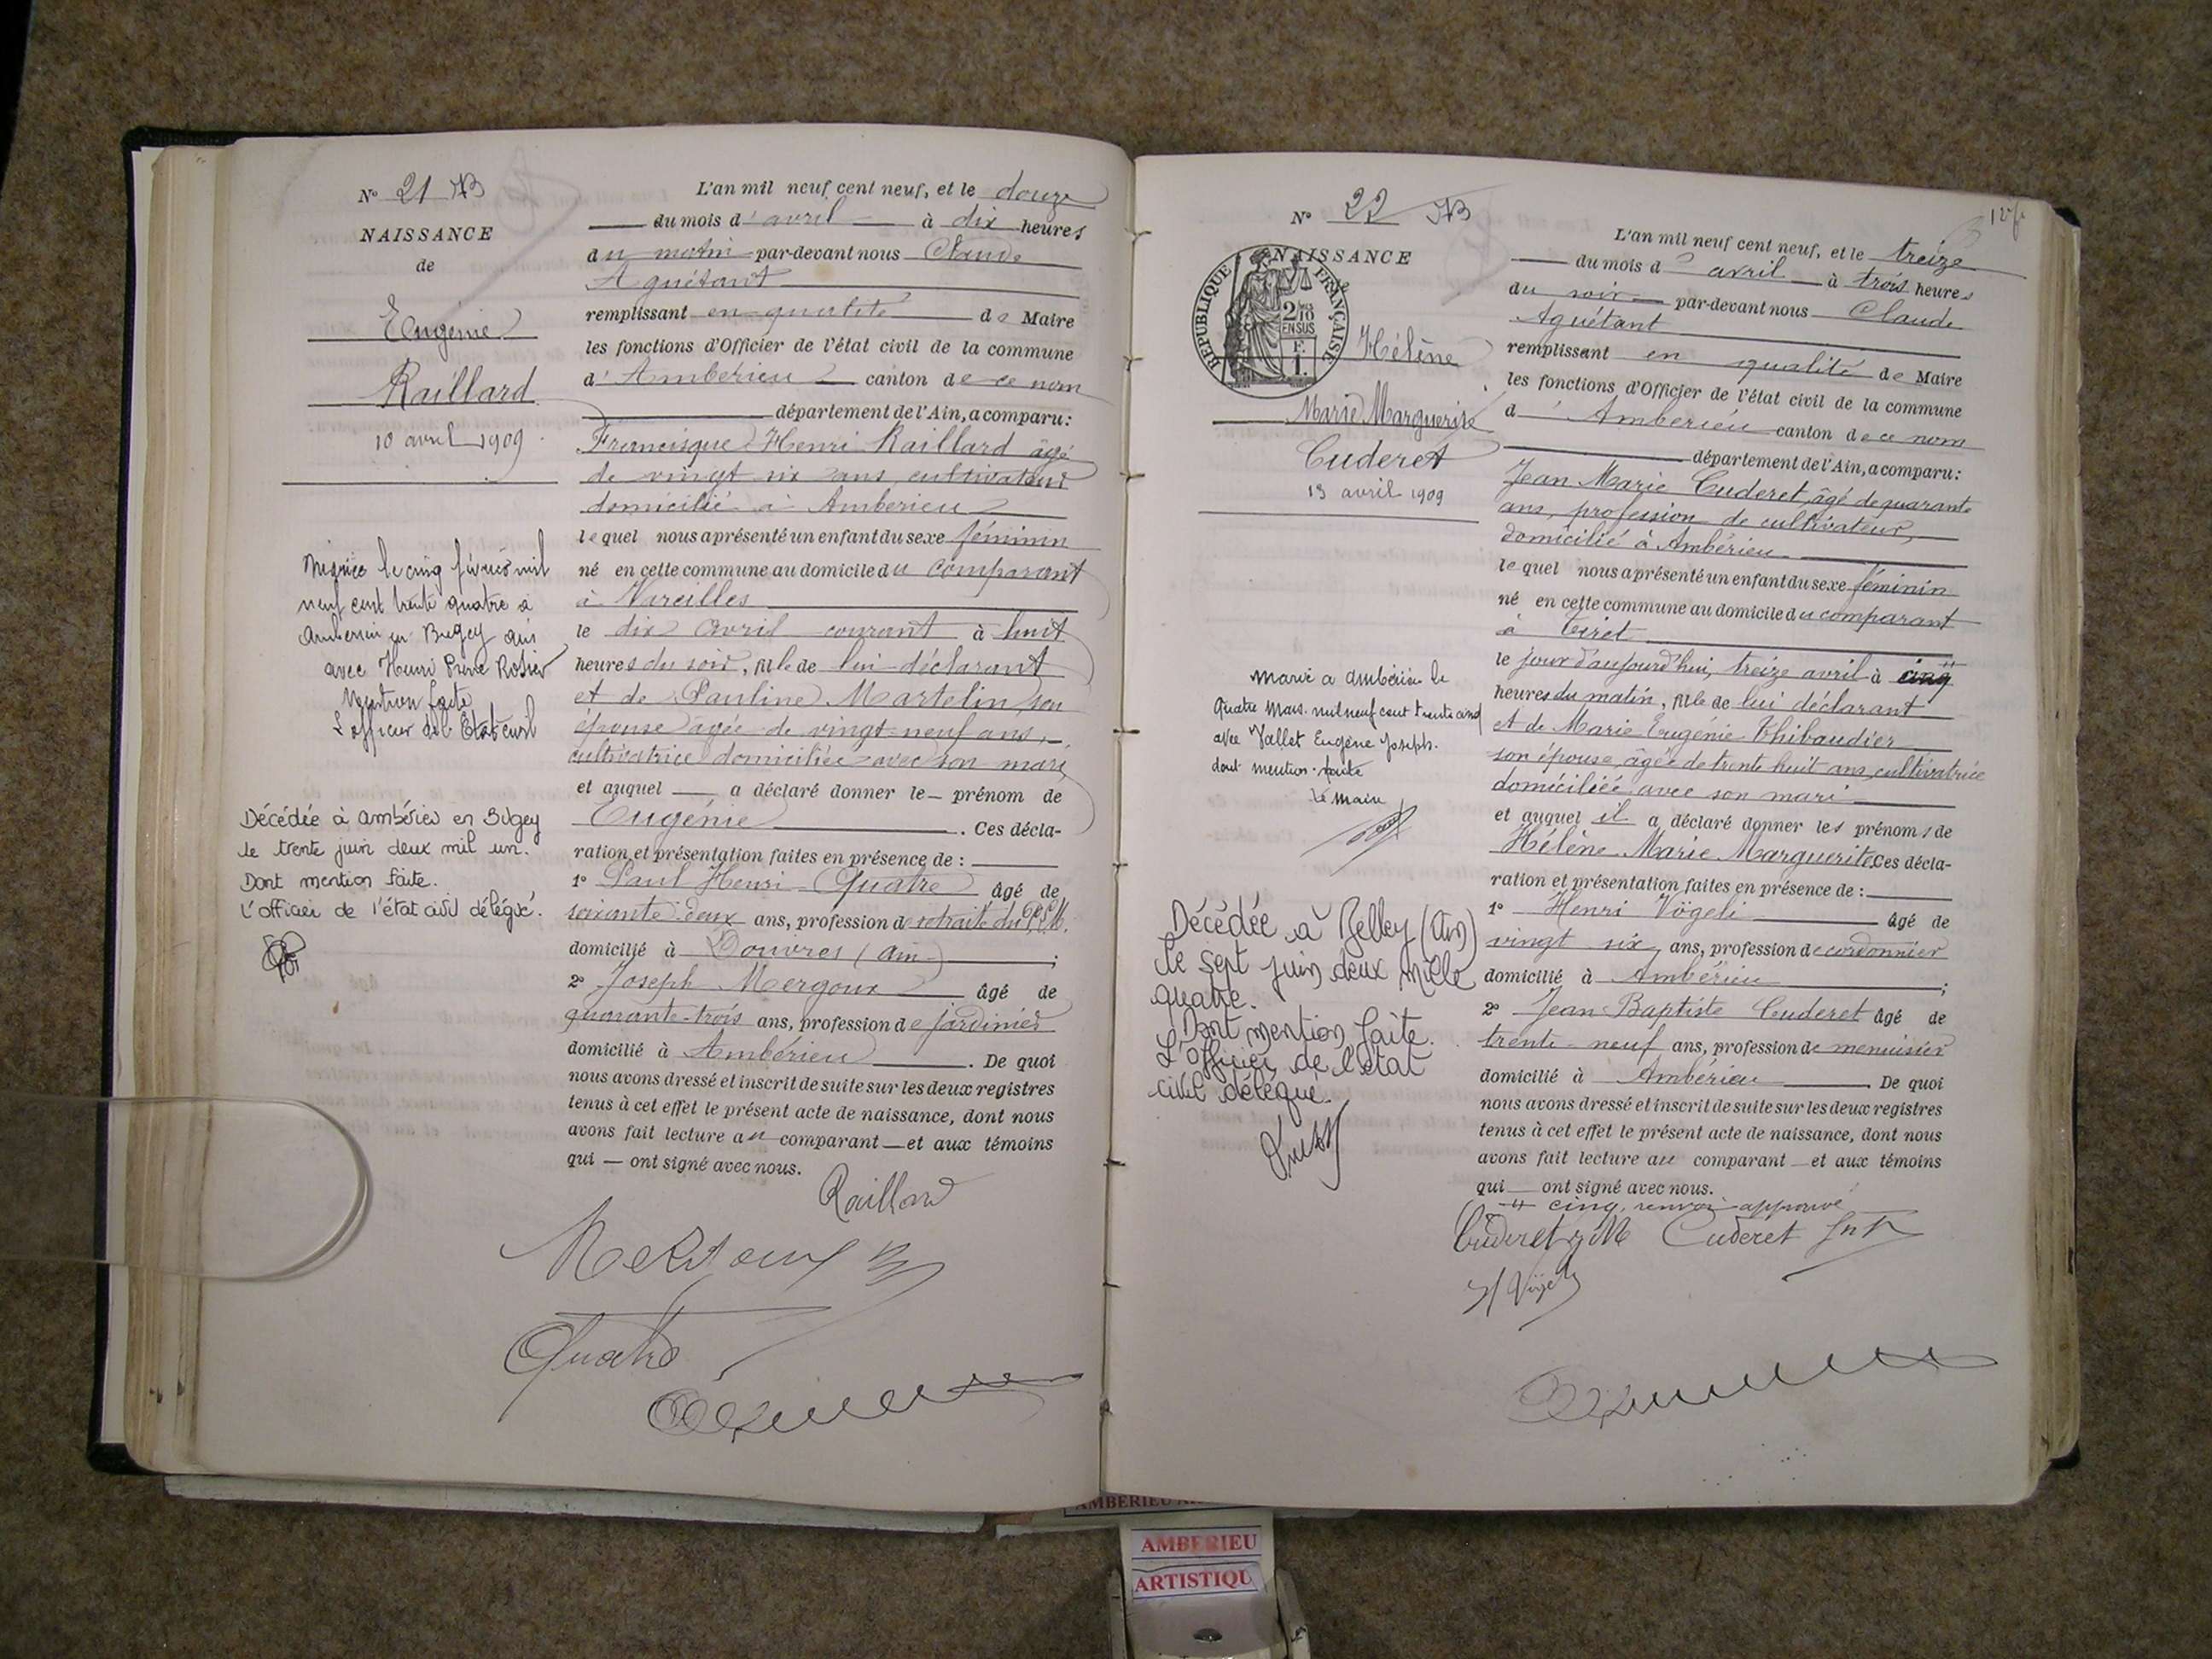 N° 21 B
NAISSANCE
de
Eugénie
Raillard
10 avril 1909
Mariée le cinq février mil
neuf cent trente quatre à
Ambérieu en Bugey Ain
avec Henri Pierre Rosier
Mention faite
L'officier de l'Etat civil
Décédée à Ambérieu en Bugey
le trente juin deux mil un.
Dont mention faite.
L'officier de l'état civil délégué.
L'an mil neuf cent neuf, et le douze
du mois d'avril à dix heures
du matin par-devant nous Claude
Aguétant
remplissant en qualité de Maire
les fonctions d'Officier de l'état civil de la commune
d'Ambérieu canton de ce nom
département de l'Ain, a comparu:
Francisque Henri Raillard âgé
de vingt six ans, cultivateur
domicilié à Ambérieu
lequel nous a présenté un enfant du sexe féminin
né en cette commune au domicile du comparant
à Vareilles
le dix avril courant à huit
heures du soir, fille de lui déclarant
et de Pauline Martelin, son
épouse âgée de vingt-neuf ans,
cultivatrice domiciliée avec son mari,
et auquel a déclaré donner le prénom de
Eugénie. Ces décla-
ration et présentation faites en présence de :
1° Paul Henri Quatre âgé de
soixante-deux ans, profession de retraité du P.L.M.
domicilié à Douvres (Ain) ;
2° Joseph Mergoux âgé de
quarante-trois ans, profession de jardinier
domicilié à Ambérieu. De quoi
nous avons dressé et inscrit de suite sur les deux registres
tenus à cet effet le présent acte de naissance, dont nous
avons fait lecture au comparant et aux témoins
qui ont signé avec nous.
Raillard
Mergoux
Quatre
N° 22 B
NAISSANCE
REPUBLIQUE FRANÇAISE
2/10 EN SUS
F. 1.
Hélène
Marie Marguerite
Cuderet
13 avril 1909
Marié à Ambérieu le
quatre Mars mil neuf cent trente cinq
avec Vallet Eugène Joseph.
dont mention faite
Le Maire
Décédée à Belley (Ain)
le sept juin deux mille
quatre.
Dont mention faite.
L'Officier de l'état
civil délégué.
L'an mil neuf cent neuf, et le treize
du mois d'avril à trois heures
du soir par-devant nous Claude
Aguétant
remplissant en qualité de Maire
les fonctions d'Officier de l'état civil de la commune
d'Ambérieu canton de ce nom
département de l'Ain, a comparu:
Jean Marie Cuderet, âgé de quarante
ans, profession de cultivateur,
domicilié à Ambérieu
lequel nous a présenté un enfant du sexe féminin
né en cette commune au domicile du comparant
à Tiret
le jour d'aujourd'hui, treize avril à cinq
heures du matin, fille de lui déclarant
et de Marie Eugénie Thibaudier
son épouse, âgée de trente huit ans, cultivatrice
domiciliée avec son mari
et auquel il a déclaré donner les prénoms de
Hélène Marie Marguerite. Ces décla-
ration et présentation faites en présence de :
1° Henri Vögeli âgé de
vingt six ans, profession de cordonnier
domicilié à Ambérieu ;
2° Jean-Baptiste Cuderet âgé de
trente-neuf ans, profession de menuisier
domicilié à Ambérieu. De quoi
nous avons dressé et inscrit de suite sur les deux registres
tenus à cet effet le présent acte de naissance, dont nous
avons fait lecture au comparant et aux témoins
qui ont signé avec nous.
cinq, renvoi approuvé
Cuderet J M Cuderet
H Vögeli
AMBERIEU
AMBERIEU
ARTISTIQU